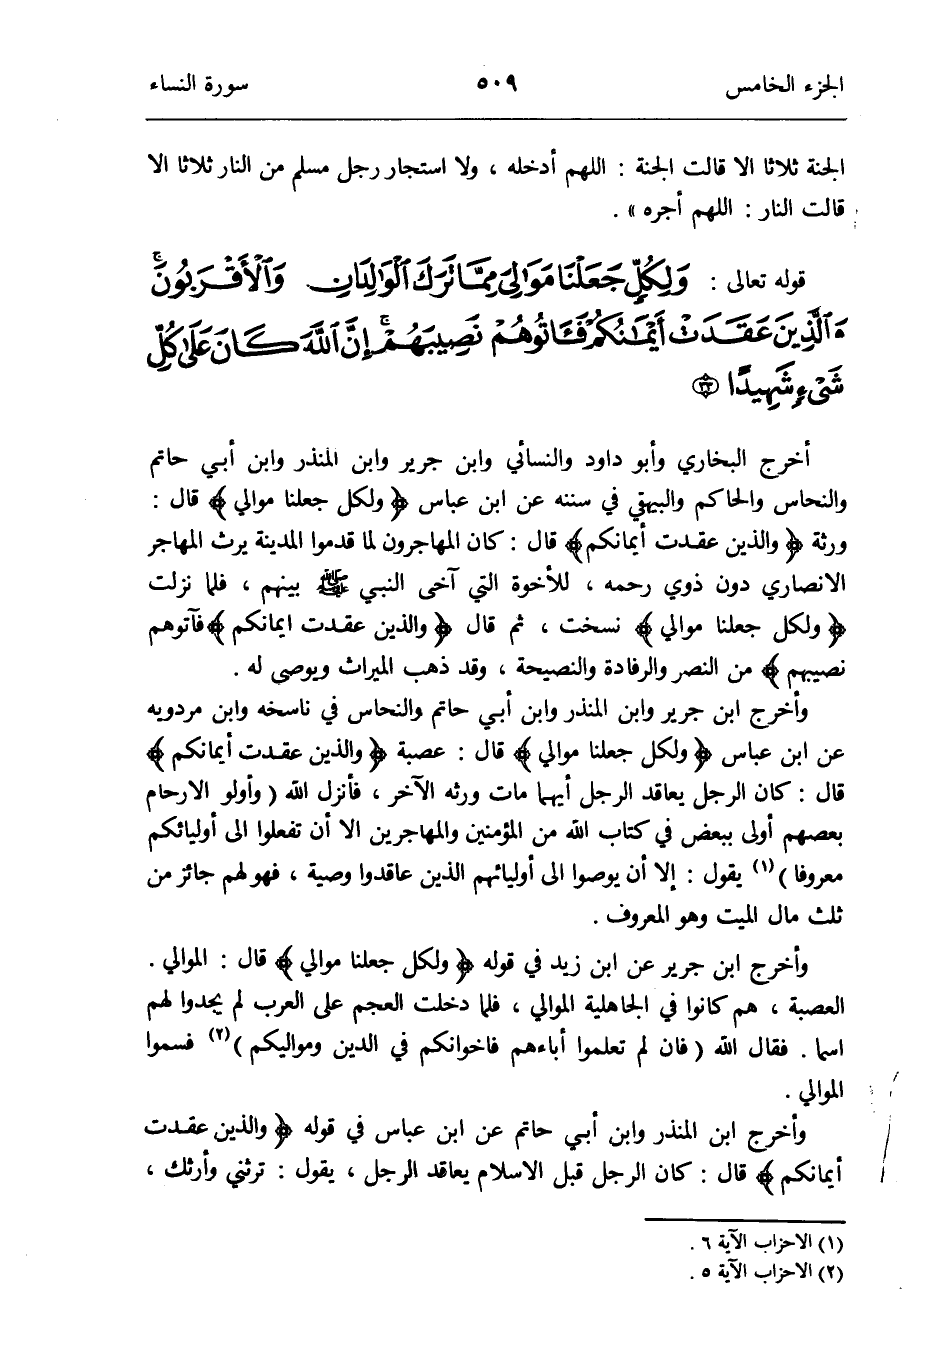 الجزء الخامس
٥٠٩
سورة النساء
الجنة ثلاثا الا قالت الجنة : اللهم أدخله ، ولا استجار رجل مسلم من النار ثلاثا الا
قالت النار : اللهم أجره » .
قوله تعالى : وَلِكُلٍّ جَعَلْنَا مَوَالِيَ مِمَّا تَرَكَ ٱلْوَٰلِدَانِ وَٱلْأَقْرَبُونَ ۚ
وَٱلَّذِينَ عَقَدَتْ أَيْمَٰنُكُمْ فَـَٔاتُوهُمْ نَصِيبَهُمْ ۚ إِنَّ ٱللَّهَ كَانَ عَلَىٰ كُلِّ
شَىْءٍ شَهِيدًا ﴿٣٣﴾
أخرج البخاري وأبو داود والنسائي وابن جرير وابن المنذر وابن أبي حاتم
والنحاس والحاكم والبيهقي في سننه عن ابن عباس ﴿ ولكل جعلنا موالي ﴾ قال :
ورثة ﴿ والذين عقدت أيمانكم﴾ قال : كان المهاجرون لما قدموا المدينة يرث المهاجر
الانصاري دون ذوي رحمه ، للأخوة التي آخى النبي ﷺ بينهم ، فلما نزلت
﴿ ولكل جعلنا موالي ﴾ نسخت ، ثم قال ﴿ والذين عقدت ايمانكم ﴾ فآتوهم
نصيبهم ﴾ من النصر والرفادة والنصيحة ، وقد ذهب الميراث ويوصى له .
وأخرج ابن جرير وابن المنذر وابن أبي حاتم والنحاس في ناسخه وابن مردويه
عن ابن عباس ﴿ ولكل جعلنا موالي ﴾ قال : عصبة ﴿ والذين عقدت أيمانكم ﴾
قال : كان الرجل يعاقد الرجل أيهما مات ورثه الآخر ، فأنزل الله ( وأولو الارحام
بعصهم أولى ببعض في كتاب الله من المؤمنين والمهاجرين الا أن تفعلوا الى أوليائكم
معروفا ) (١) يقول : إلا أن يوصوا الى أوليائهم الذين عاقدوا وصية ، فهو لهم جائز من
ثلث مال الميت وهو المعروف .
وأخرج ابن جرير عن ابن زيد في قوله ﴿ ولكل جعلنا موالي ﴾ قال : الموالي .
العصبة ، هم كانوا في الجاهلية الموالي ، فلما دخلت العجم على العرب لم يجدوا لهم
اسما . فقال الله ( فان لم تعلموا أباءهم فاخوانكم في الدين ومواليكم ) (٢) فسموا
الموالي .
وأخرج ابن المنذر وابن أبي حاتم عن ابن عباس في قوله ﴿ والذين عقدت
أيمانكم ﴾ قال : كان الرجل قبل الاسلام يعاقد الرجل ، يقول : ترثني وأرثك ،
(١) الاحزاب الآية ٦ .
(٢) الاحزاب الآية ٥ .